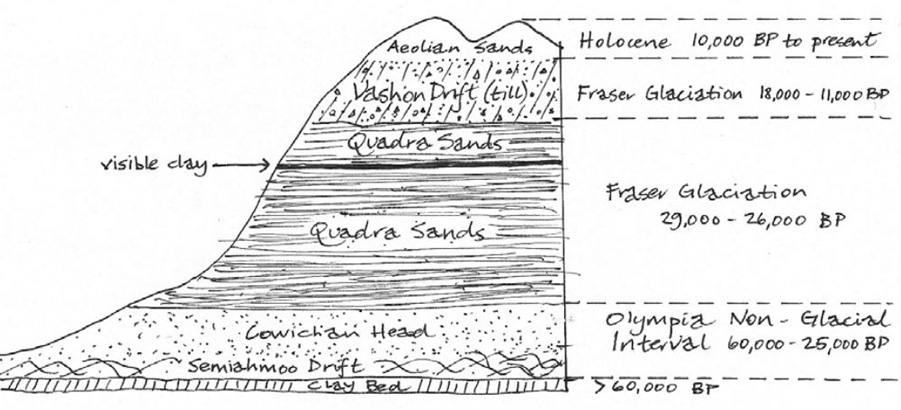 Aeolian Sands
Holocene 10,000 BP to present
Vashon Drift (till)
Fraser Glaciation 18,000 - 11,000 BP
Quadra Sands
visible clay
Fraser Glaciation
29,000 - 26,000 BP
Quadra Sands
Cowichan Head
Olympia Non - Glacial
Interval 60,000 - 25,000 BP
Semiahmoo Drift
Clay Bed
>60,000 BP